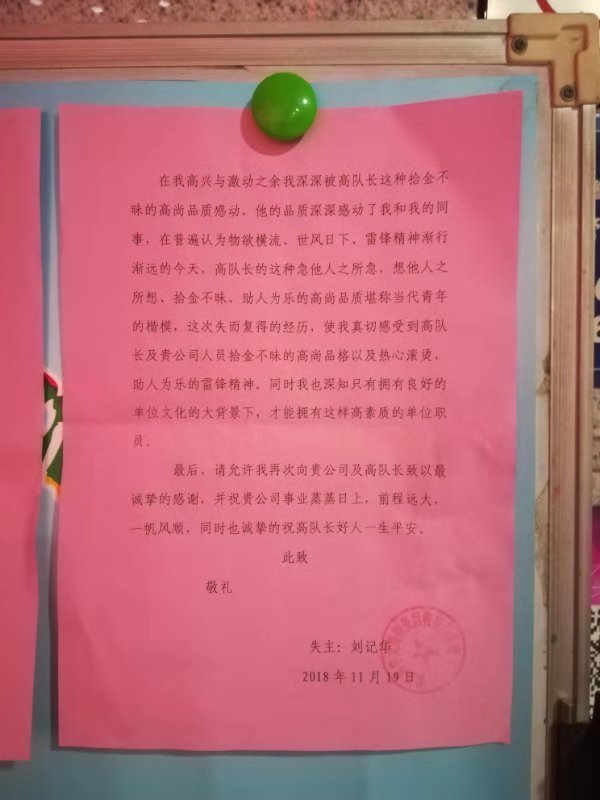 在我高兴与激动之余我深深被高队长这种拾金不
昧的高尚品质感动，他的品质深深感动了我和我的同
事，在普遍认为物欲横流、世风日下、雷锋精神渐行
渐远的今天，高队长的这种急他人之所急，想他人之
所想、拾金不昧、助人为乐的高尚品质堪称当代青年
的楷模，这次失而复得的经历，使我真切感受到高队
长及贵公司人员拾金不昧的高尚品格以及热心滚烫，
助人为乐的雷锋精神。同时我也深知只有拥有良好的
单位文化的大背景下，才能拥有这样高素质的单位职
员。
最后，请允许我再次向贵公司及高队长致以最
诚挚的感谢，并祝贵公司事业蒸蒸日上，前程远大，
一帆风顺，同时也诚挚的祝高队长好人一生平安。
此致
敬礼
失主：刘记华
2018 年 11 月 19 日